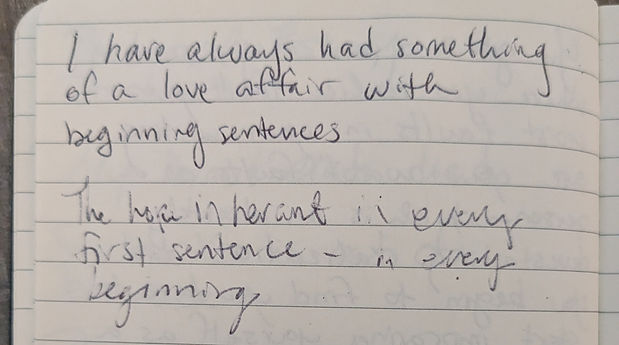 I have always had something
of a love affair with
beginning sentences
The hope inherant in every
first sentence - in every
beginning